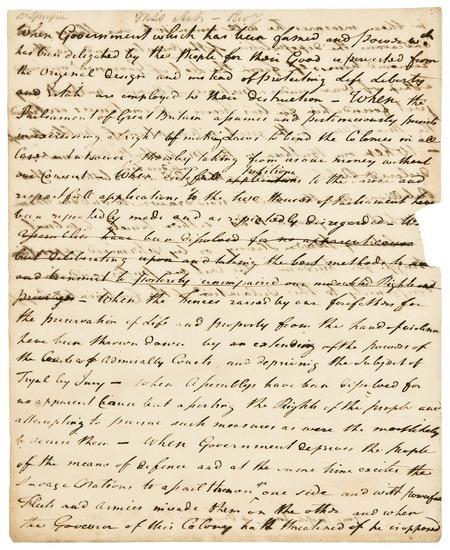 When Government which has been formed and Powers wch
has been delegated by the People for their Good is perverted from
the Original Design and instead of protecting Life Liberty
and are employed to their destruction – When the
Parliament of Great Britain assumes and pertinaciously persists
in exercising a right of making Laws to bind the Colonies in all
Cases whatsoever thereby taking from us our money without
our Consent When Petitions to the and
respectfull applications to the two houses of Parliament have
been repeatedly made and as repeatedly disregarded – the
Assemblies have been dissolved for no apparent cause
but deliberating upon and taking the best methods to
and transmit to posterity unimpaired our undoubted Rights and
privileges – When the fences raised by our forefathers for
the preservation of Life and property from the hand of violence
have been thrown down by an extending of the powers of
the Courts of Admiralty Courts and depriving the Subject of
Tryal by Jury – When Assemblys have been dissolved for
no apparent Cause but asserting the Rights of the people and
attempting to pursue such measures as were the most likely
to secure them – When Government deprives the People
of the means of defence and at the same time excites the
Savage Nations to assail them on ye one side and with powerful
Fleets and Armies invade them on the other and when
the Governor of this Colony hath threatened if he is opposed